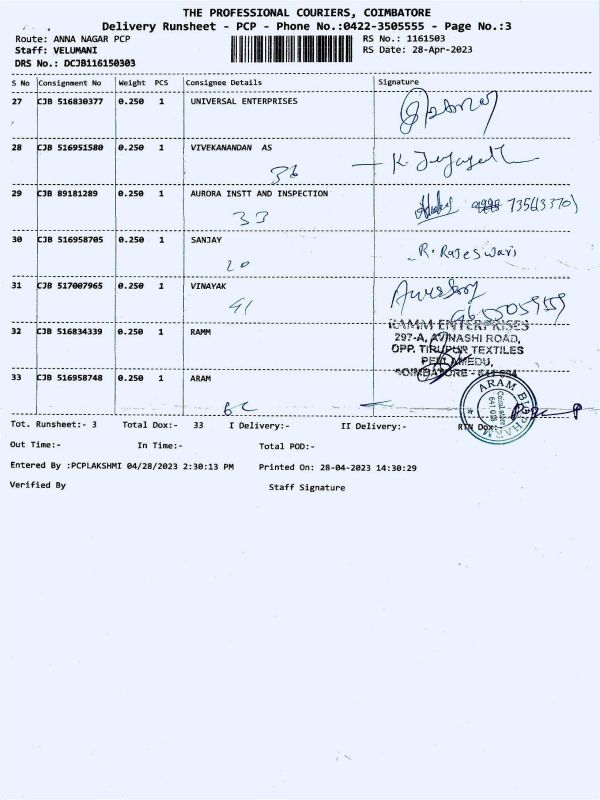 THE PROFESSIONAL COURIERS, COIMBATORE
Delivery Runsheet - PCP - Phone No.:0422-3505555 - Page No.:3
Route: ANNA NAGAR PCP RS No.: 1161503
Staff: VELUMANI RS Date: 28-Apr-2023
DRS No.: DCJB116150303
S No Consignment No Weight PCS Consignee Details Signature
27 CJB 516830377 0.250 1 UNIVERSAL ENTERPRISES
28 CJB 516951580 0.250 1 VIVEKANANDAN AS
36
29 CJB 89181289 0.250 1 AURORA INSTT AND INSPECTION
33
30 CJB 516958705 0.250 1 SANJAY R. Rajeswari
20
31 CJB 517007965 0.250 1 VINAYAK
41
RAMM ENTERPRISES
32 CJB 516834339 0.250 1 RAMM 297-A, AVINASHI ROAD,
OPP. TIRUPUR TEXTILES
PEELAMEDU,
COIMBATORE - 641 004
33 CJB 516958748 0.250 1 ARAM
Tot. Runsheet:- 3 Total Dox:- 33 I Delivery:- II Delivery:- RTN Dox:-
Out Time:- In Time:- Total POD:-
Entered By :PCPLAKSHMI 04/28/2023 2:30:13 PM Printed On: 28-04-2023 14:30:29
Verified By Staff Signature